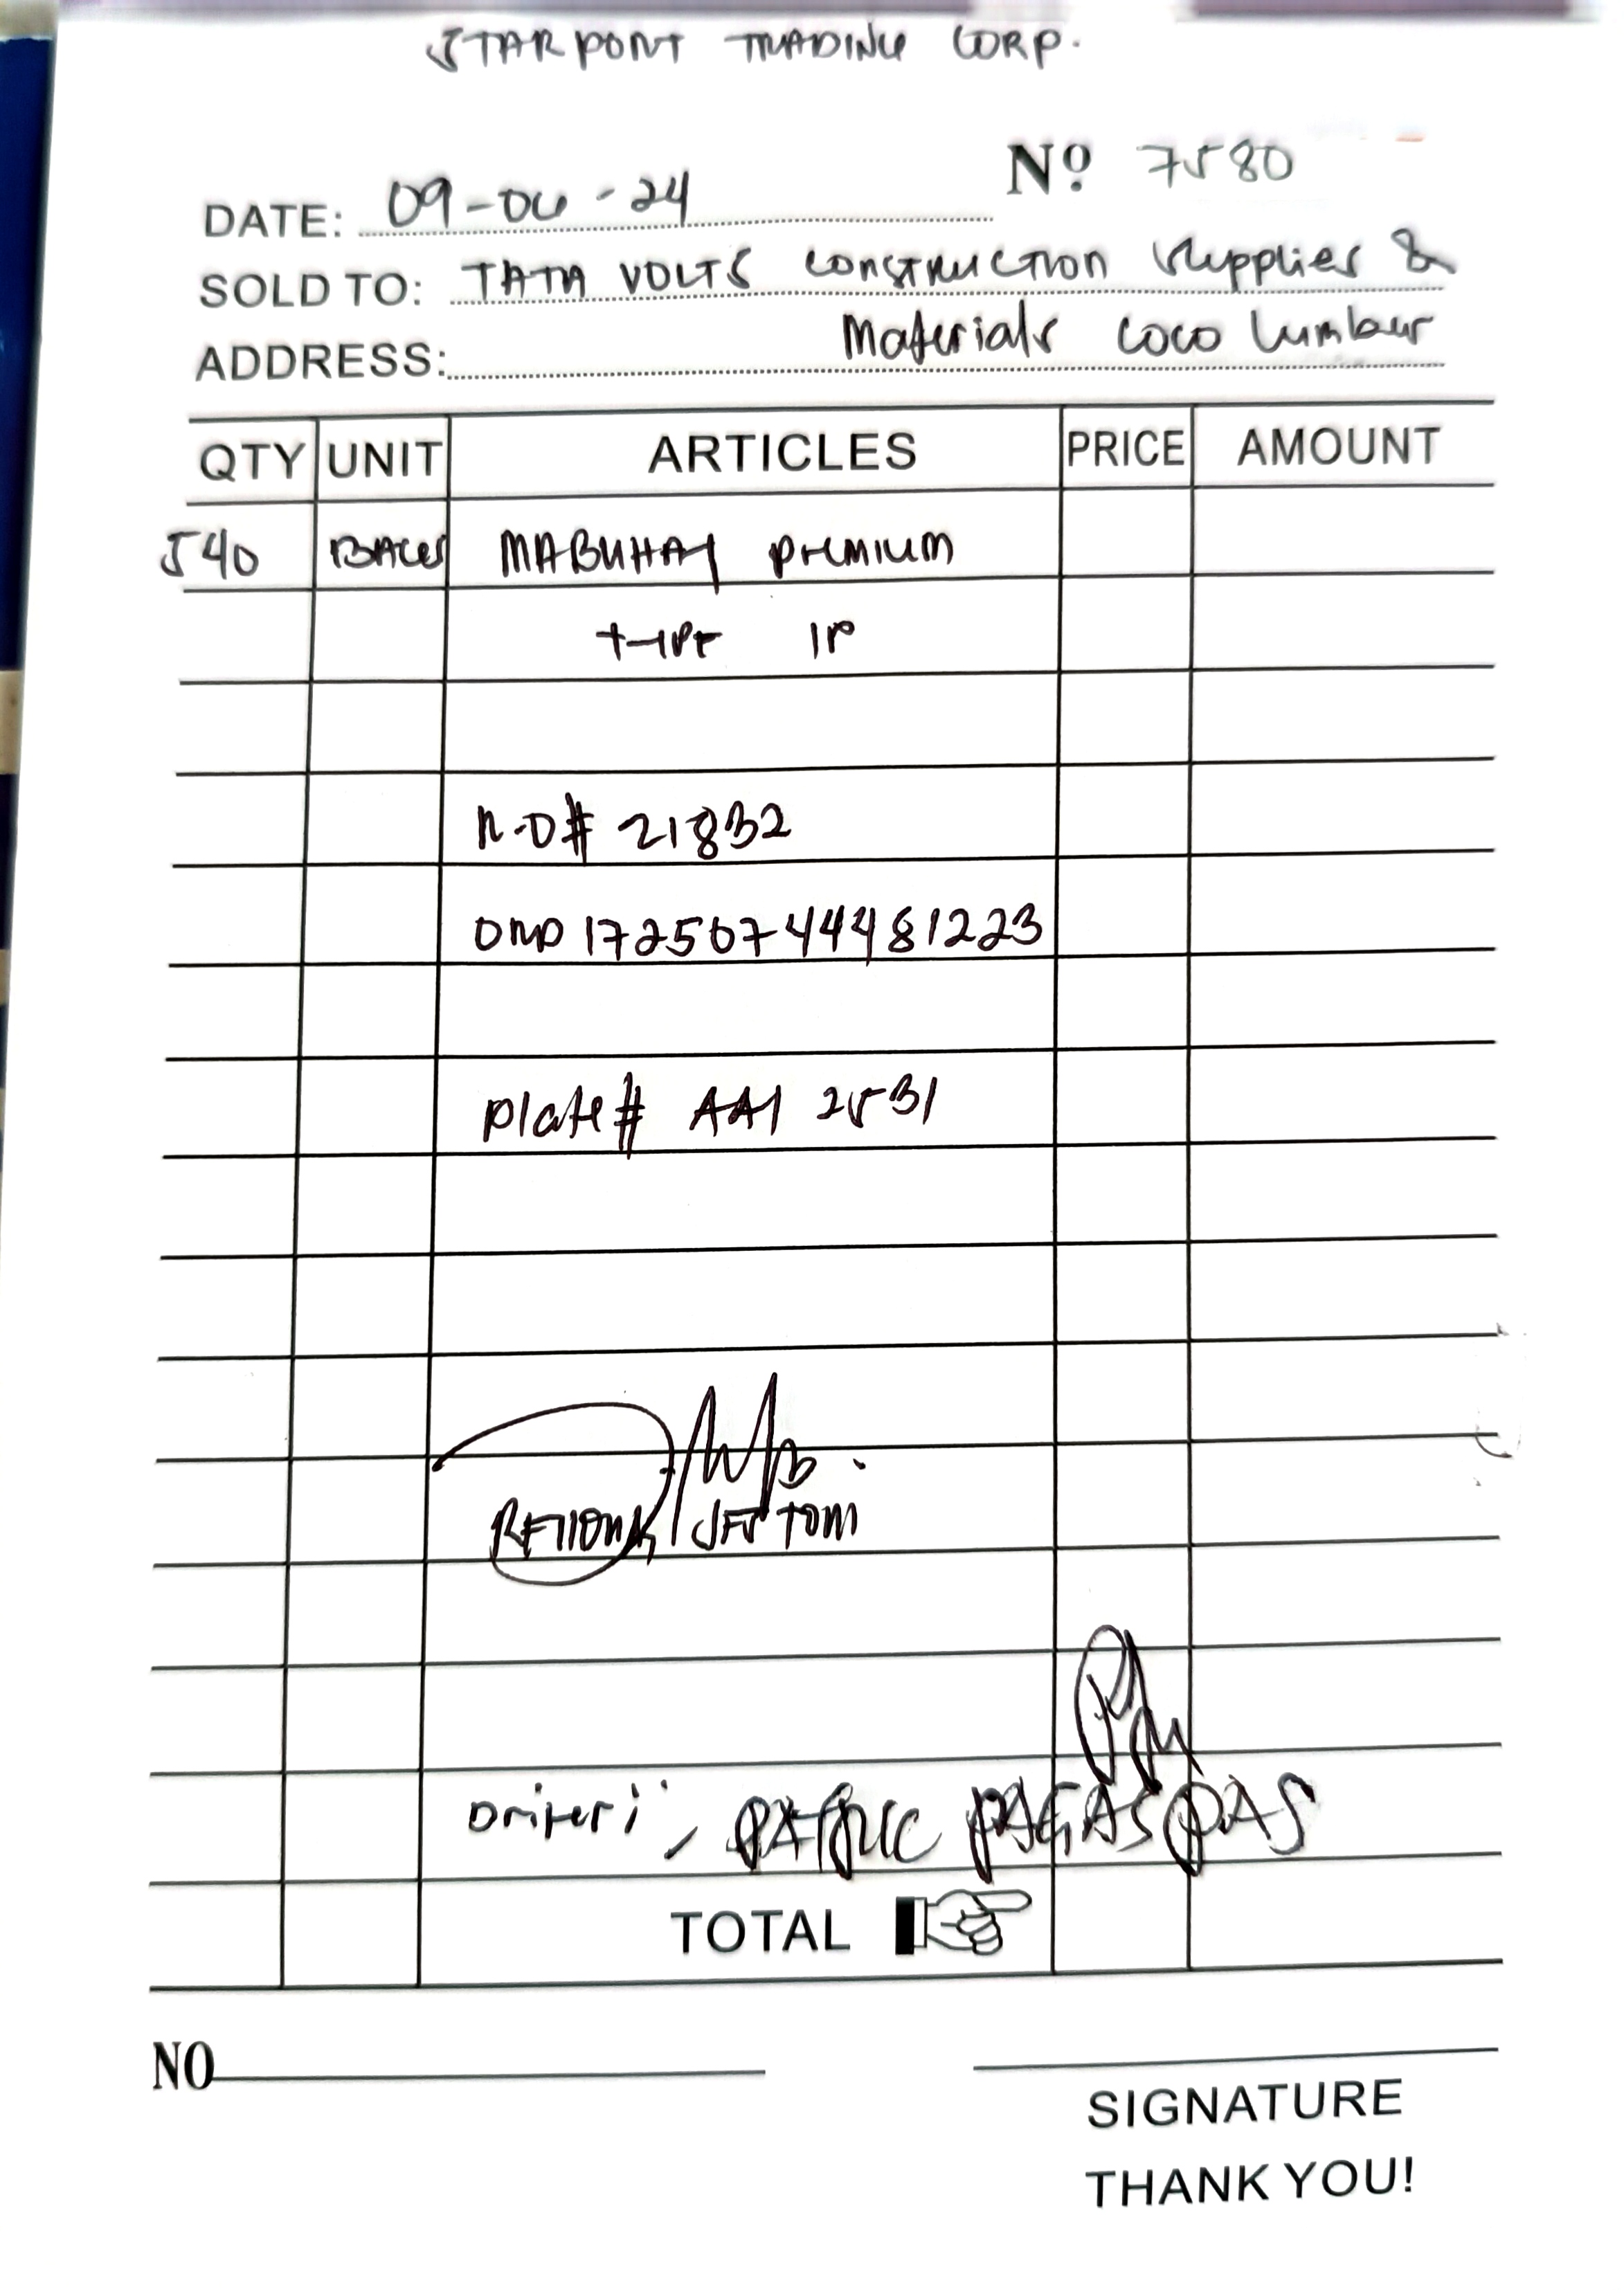 STARPORT TRADING CORP.
Nº 7580
DATE: 09-06-24
SOLD TO: TATA VOLTS CONSTRUCTION Supplies &
ADDRESS: Materials coco lumber
QTY UNIT ARTICLES PRICE AMOUNT
540 BAGS MABUHAY PREMIUM
TYPE 1P
# 21832
1725074448 1223
plate# AAY 2531
TOM
Driver: PATRIC PAGASPAS
TOTAL
NO
SIGNATURE
THANK YOU!